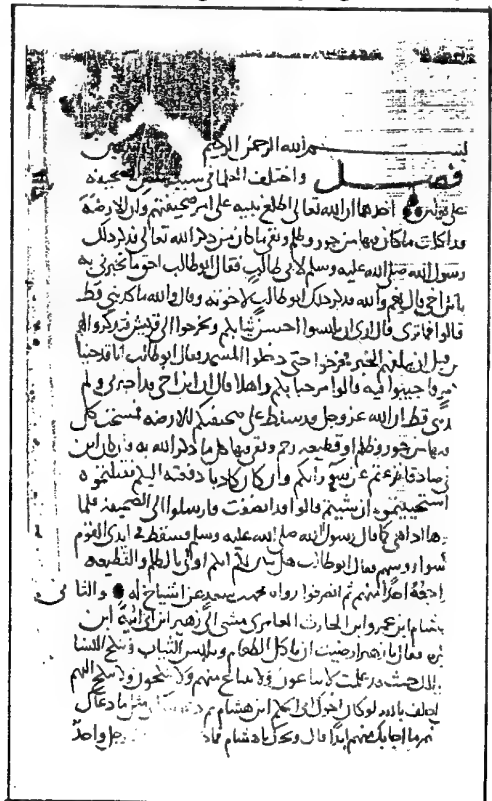 بسم الله الرحمن الرحيم
فصل واختلف العلماء في سبب نقض الصحيفه
على قولين احدهما ان الله تعالى اطلع نبيه على امر صحيفتهم وان الارضة
قد اكلت ما كان فيها من جور وظلم وبقي ما كان من ذكر الله تعالى فذكر ذلك
رسول الله صلى الله عليه وسلم لابي طالب فقال ابو طالب احق ما تخبرني به
يا بن اخي قال نعم والله فذكر ذلك ابو طالب لاخوته وقال والله ما كذبني قط
قالوا فما ترى قال ارى ان تلبسوا احسن ثيابكم وتخرجوا الى قريش فتذكروا لهم
قبل ان يبلغهم الخبر فخرجوا حتى دخلوا المسجد فقال ابو طالب انا قد جئنا
فاجيبوا فيه قالوا مرحبا بكم واهلا قال ان ابن اخي قد اخبرني ولم
قط ان الله عز وجل قد سلط على صحيفتكم الارضه فمسحت كل
فيها من جور وظلم او قطيعه رحم وبقي فيها كل ما ذكر الله به فان كان ابن
صادقا نزعتم عن سو رأيكم وان كان كاذبا دفعته اليكم فقتلتموه
استحييتموه ان شيتم قالوا قد انصفت فارسلوا الى الصحيفة فلما
هي كما قال رسول الله صلى الله عليه وسلم فسقط في ايدي القوم
رؤسهم فقال ابو طالب هل تبين لكم انكم اولى بالظلم والقطيعه
منهم ثم انصرفوا رواه محمد بن سعد عن اشياخ له والثاني
هشام ابن عمرو ابن الحارث العامري مشى الى زهير ابن ابي امية ابن
فقال يا زهير ارضيت ان تاكل الطعام وتلبس الثياب وتنكح النسا
حيث قد علمت لا يباعون ولا يبتاع منهم ولا ينكحون ولا ينكح اليهم
احلف بالله لو كان اخوال ابي الحكم ابن هشام ثم دعوته الى مثل ما دعاك
ما اجابك منهم ابدا قال ويحك يا هشام فماذا رجل واحد